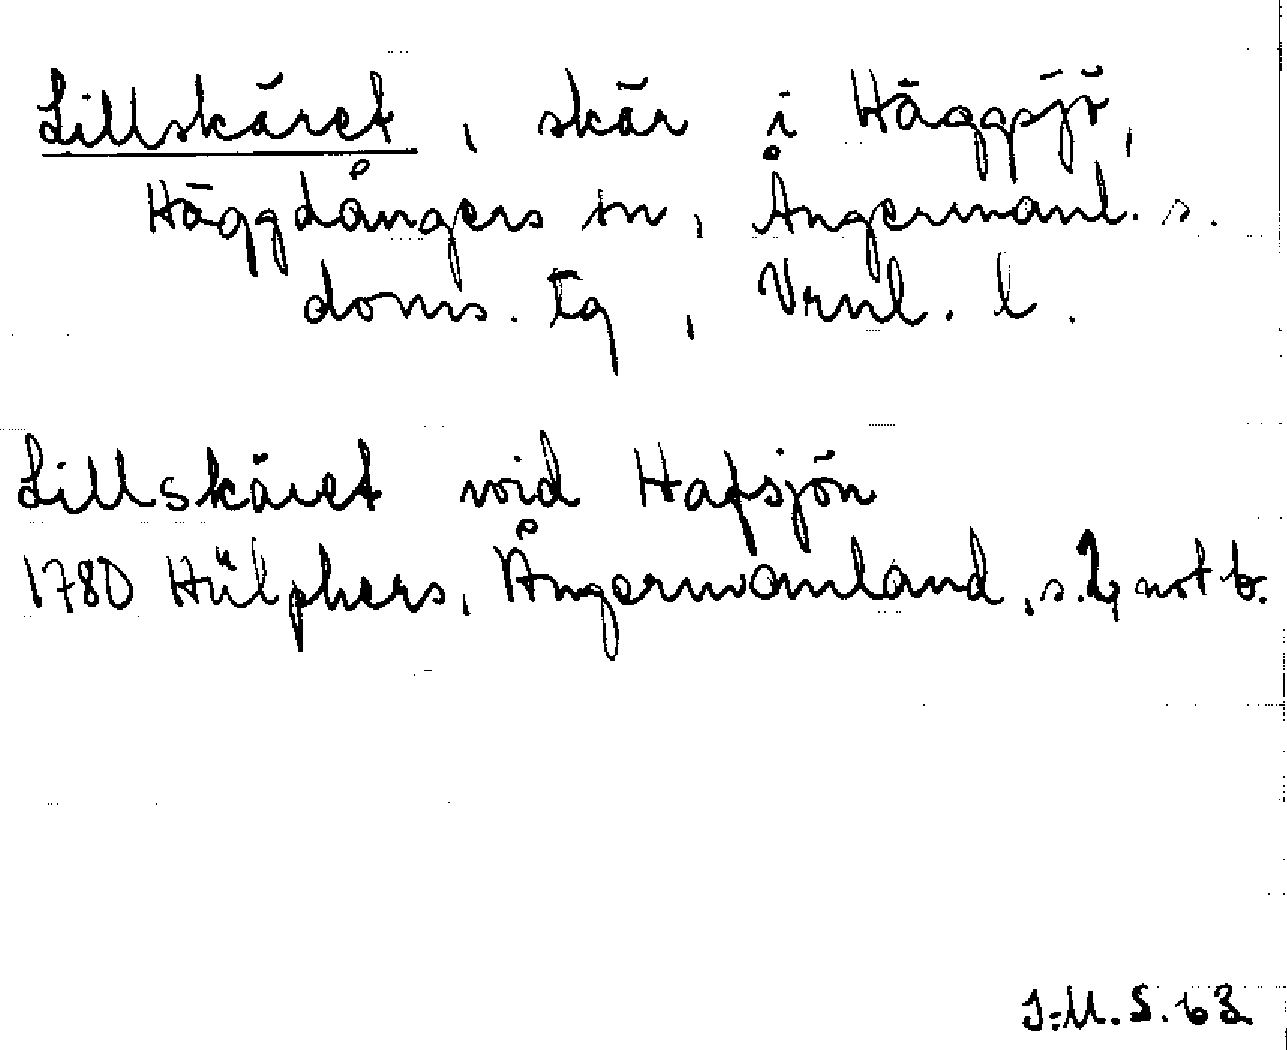 Lillskäret, skär i Häggsjö,
Häggdångers sn, Ångermanl. s.
doms. tg, Vrnl. l.
Lillskäret wid Hafsjön
1780 Hülphers, Ångermanland, s. not b.
I.-M. S. 63